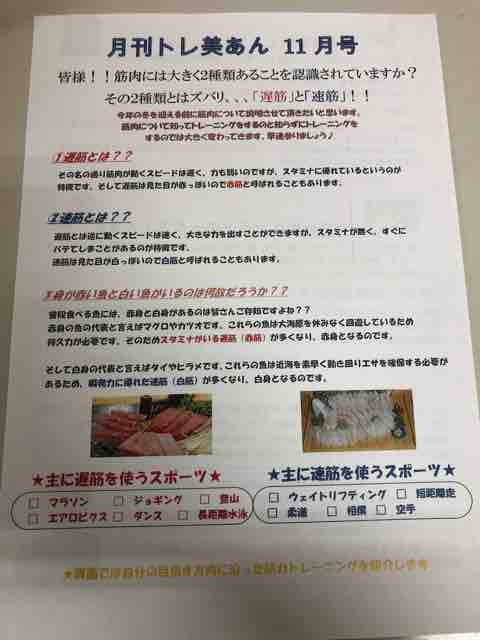 月刊トレ美あん 11月号
皆様！！筋肉には大きく2種類あることを認識されていますか？
その2種類とはズバリ、、、「遅筋」と「速筋」！！
今年の冬を迎える前に筋肉について説明させて頂きたいと思います。
筋肉について知ってトレーニングをするのと知らずにトレーニングを
するのでは大きく変わってきます。早速参りましょう♪
①遅筋とは？？
その名の通り筋肉が動くスピードは遅く、力も弱いのですが、スタミナに優れているというのが
特徴です。そして遅筋は見た目が赤っぽいので赤筋と呼ばれることもあります。
②速筋とは？？
遅筋とは逆に動くスピードは速く、大きな力を出すことができますが、スタミナが無く、すぐに
バテてしまうことがあるのが特徴です。
速筋は見た目が白っぽいので白筋と呼ばれることもあります。
③身が赤い魚と白い魚がいるのは何故だろうか？？
普段食べる魚には、赤身と白身があるのは皆さんご存知ですよね？？
赤身の魚の代表と言えばマグロやカツオです。これらの魚は大海原を休みなく回遊しているため
持久力が必要です。そのためスタミナがいる遅筋（赤筋）が多くなり、赤身となるのです。
そして白身の代表と言えばタイやヒラメです。これらの魚は近海を素早く動き回りエサを確保する必要が
あるため、瞬発力に優れた速筋（白筋）が多くなり、白身となるのです。
★主に遅筋を使うスポーツ★
□ マラソン □ ジョギング □ 登山
□ エアロビクス □ ダンス □ 長距離水泳
★主に速筋を使うスポーツ★
□ ウェイトリフティング □ 短距離走
□ 柔道 □ 相撲 □ 空手
★裏面では自分の目指す方向に沿った筋力トレーニングを紹介します